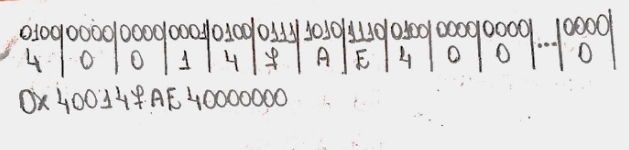 0100|0000|0000|0001|0100|0111|1010|1110|0100|0000|0000|...|0000
4|0|0|1|4|7|A|E|4|0|0|0
0x400147AE40000000